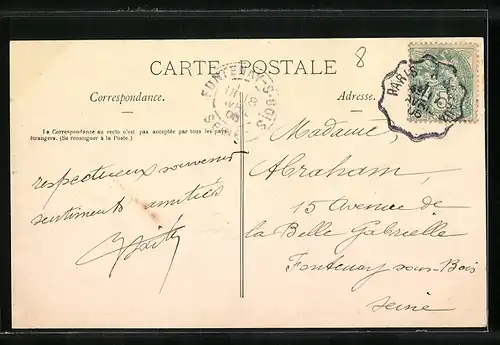 8
CARTE POSTALE
FONTENAY-S-BOIS
PARIS
Correspondance.
Adresse.
La Correspondance au recto n'est pas acceptée par tous les pays
étrangers. (Se renseigner à la Poste.)
respectueux souvenir
sentiments amitiés
Madame,
Abraham,
15 Avenue de
la Belle Gabrielle
Fontenay sous-Bois
Seine